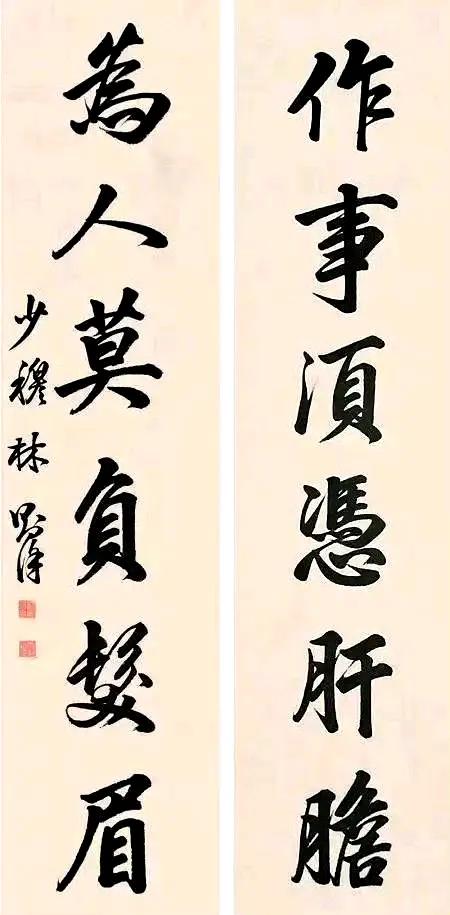 作事須憑肝膽
為人莫負鬚眉
少穆林則徐